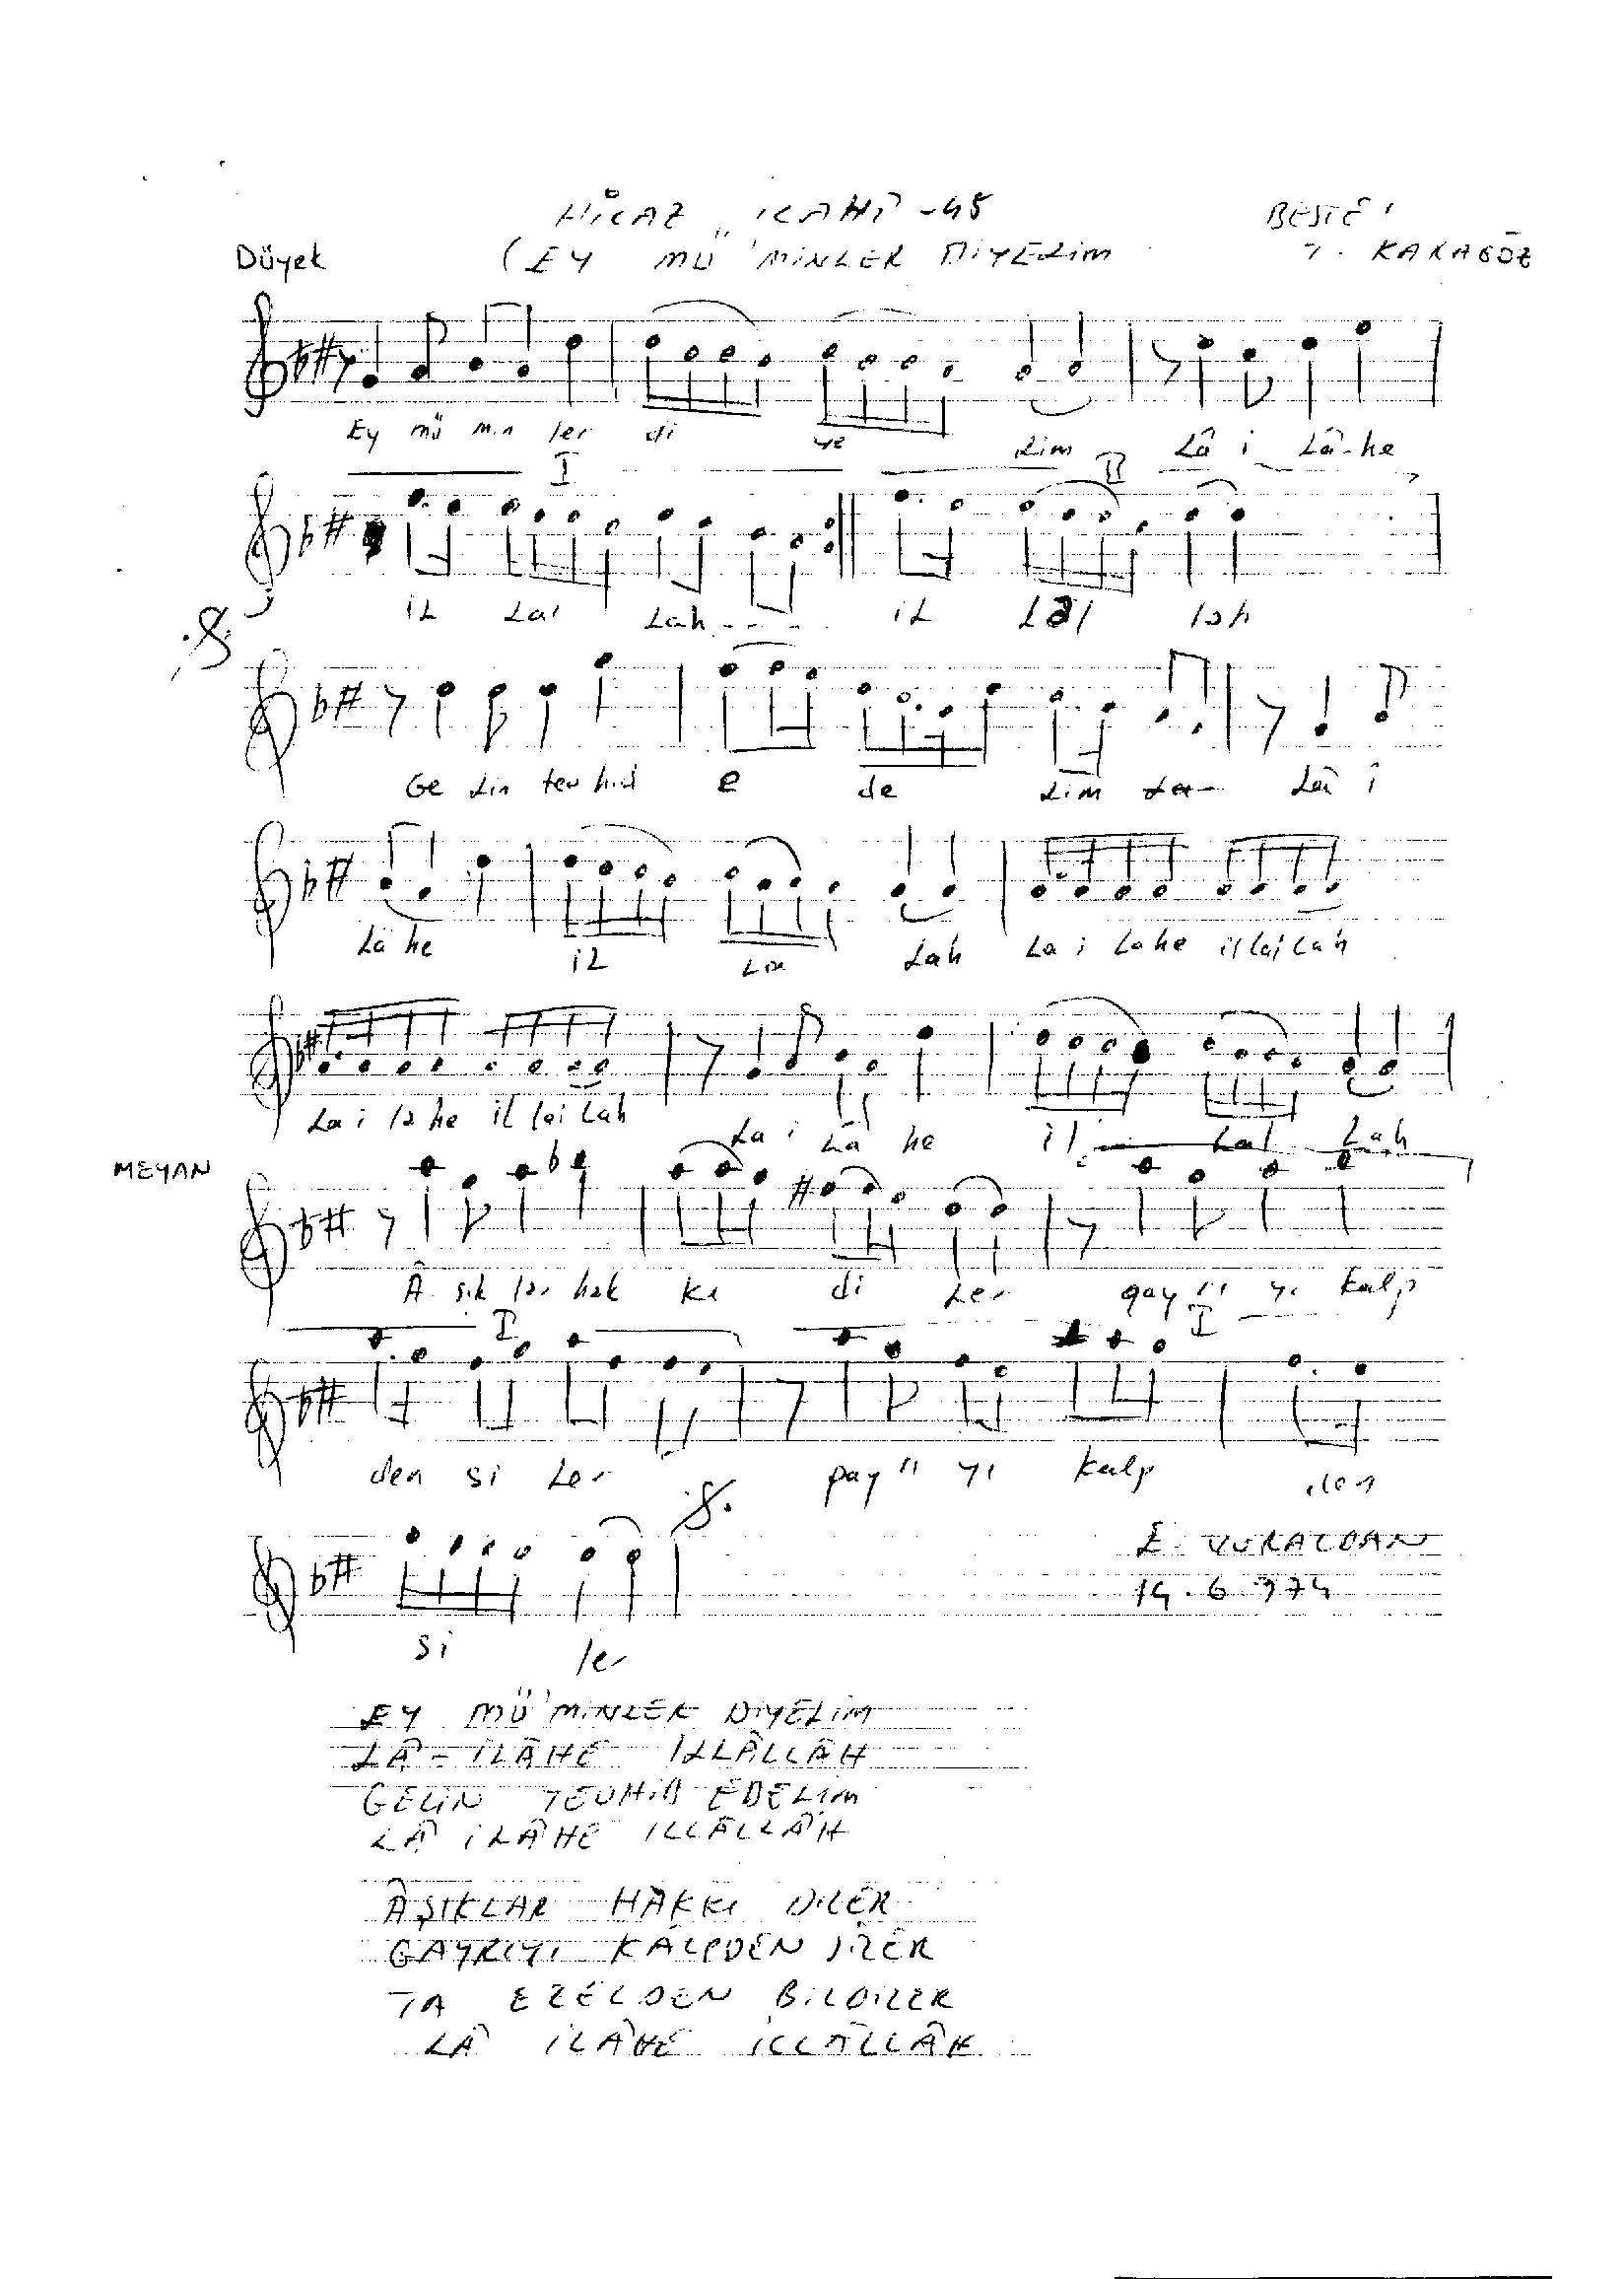 HİCAZ İLAHİ -45
BESTE:
Düyek
(EY MÜ'MİNLER DİYELİM
T. KARAGÖZ
Ey mü min ler di ye Lim Lâ i Lâ-he
I II
iL Lal Lah iL Lal lah
Ge Lin tev hid e de Lim Lâ i
Lâ he iL La Lah La i La he il lal Lah
La i la he il lal Lah La i Lâ he il Lal Lah
MEYAN
 şık lar hak kı di Ler gay rı yı kalp
I I
den si Ler gay rı yı kalp den
E. VURALDAN
14.6.974
si ler
EY MÜ'MİNLER DİYELİM
LÂ-İLÂHE İLLÂLLÂH
GELİN TEVHİD EDELİM
LÂ İLÂHE İLLÂLLÂH
ÂŞIKLAR HAKKI DİLER
GAYRIYI KALPDEN SİLER
TA EZELDEN BİLDİLER
LÂ İLÂHE İLLÂLLÂH